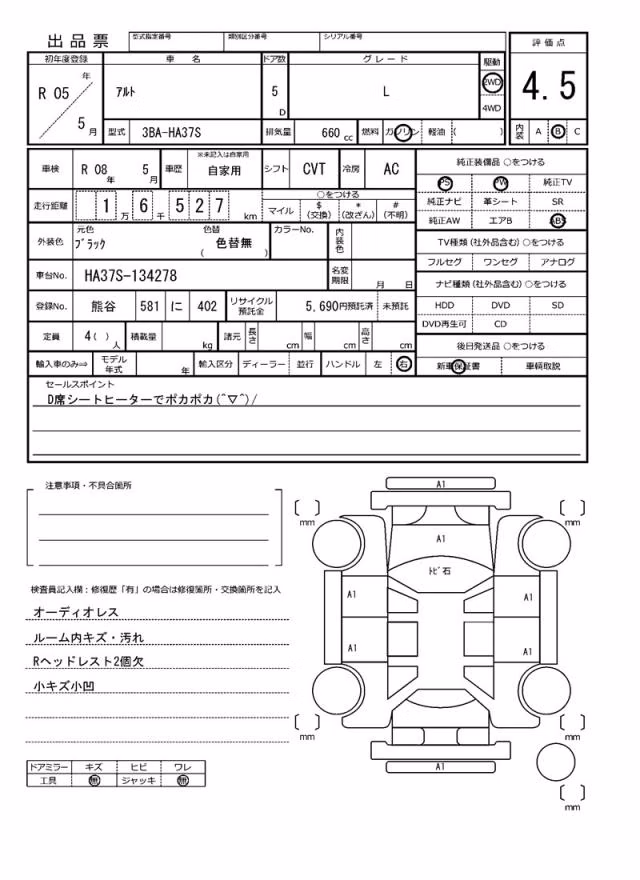 出品票
型式指定番号 類別区分番号 シリアル番号
初年度登録 車名 ドア数 グレード 駆動 評価点
R 05 年 5 月
アルト 5 D L 2WD 4WD 4.5
型式 3BA-HA37S 排気量 660 cc 燃料 ガソリン 軽油 ( ) 内装 A B C
車検 R 08 年 5 月 車歴 ※未記入は自家用 自家用 シフト CVT 冷房 AC
走行距離 1 万 6 千 5 2 7 km
○をつける
マイル $ (交換) * (改ざん) # (不明)
外装色 元色 ブラック 色替 ( 色替無 ) カラーNo. 内装色
車台No. HA37S-134278 名変期限 月 日
登録No. 熊谷 581 に 402 リサイクル預託金 5,690円預託済 未預託
定員 4( ) 人 積載量 kg 諸元 長さ cm 幅 cm 高さ cm
輸入車のみ⇒ モデル年式 年 輸入区分 ディーラー 並行 ハンドル 左 右
純正装備品 ○をつける
PS PW 純正TV
純正ナビ 革シート SR
純正AW エアB ABS
TV種類 (社外品含む) ○をつける
フルセグ ワンセグ アナログ
ナビ種類 (社外品含む) ○をつける
HDD DVD SD
DVD再生可 CD
後日発送品 ○をつける
新車保証書 車輌取説
セールスポイント
D席シートヒーターでポカポカ(^▽^)/
注意事項・不具合箇所
検査員記入欄：修復歴「有」の場合は修復箇所・交換箇所を記入
オーディオレス
ルーム内キズ・汚れ
Rヘッドレスト2個欠
小キズ小凹
ドアミラー キズ ヒビ ワレ
工具 無 ジャッキ 無
A1
[ ] mm [ ] mm
A1
トビ石
A1 A1
A1 A1
[ ] mm [ ] mm
A1
[ ] mm